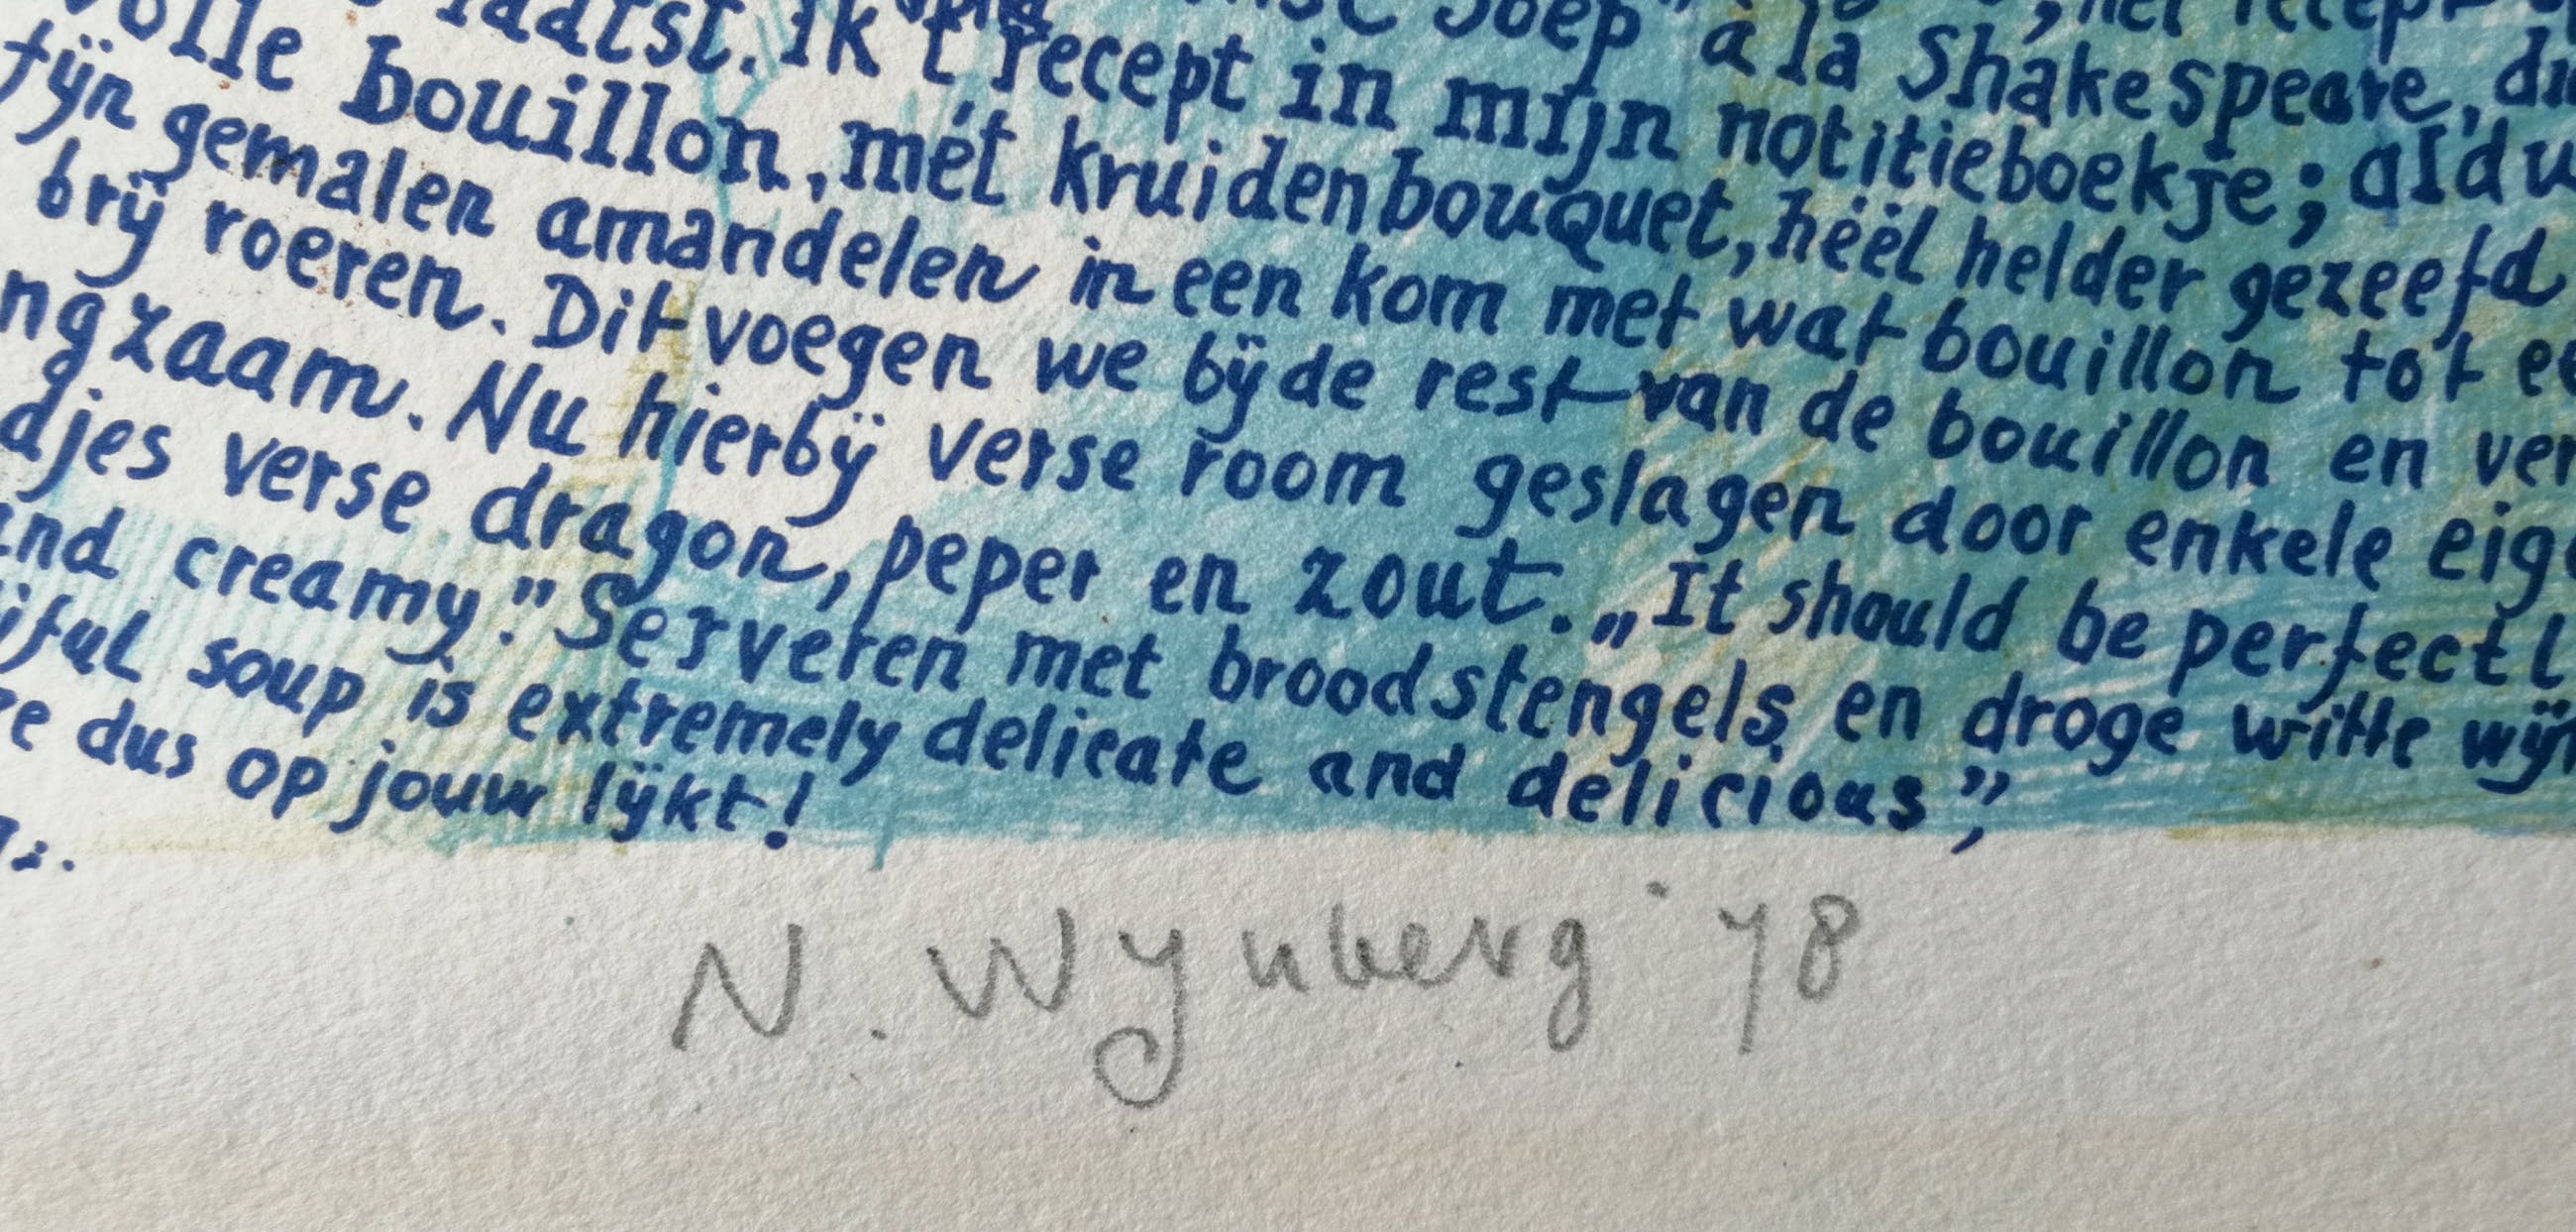 laatst. Ik 't recept in mijn notitieboekje; aldu
Soep" à la Shakespeare, di
olle bouillon, mét kruidenbouquet, héél helder gezeefd
fijn gemalen amandelen in een kom met wat bouillon tot ee
brij roeren. Dit voegen we bij de rest van de bouillon en ver
ngzaam. Nu hierbij verse room geslagen door enkele eig
djes verse dragon, peper en zout. „It should be perfectl
and creamy." Serveren met broodstengels en droge witte wijn
iful soup is extremely delicate and delicious",
re dus op jouw lijkt!
N. Wijnberg '78